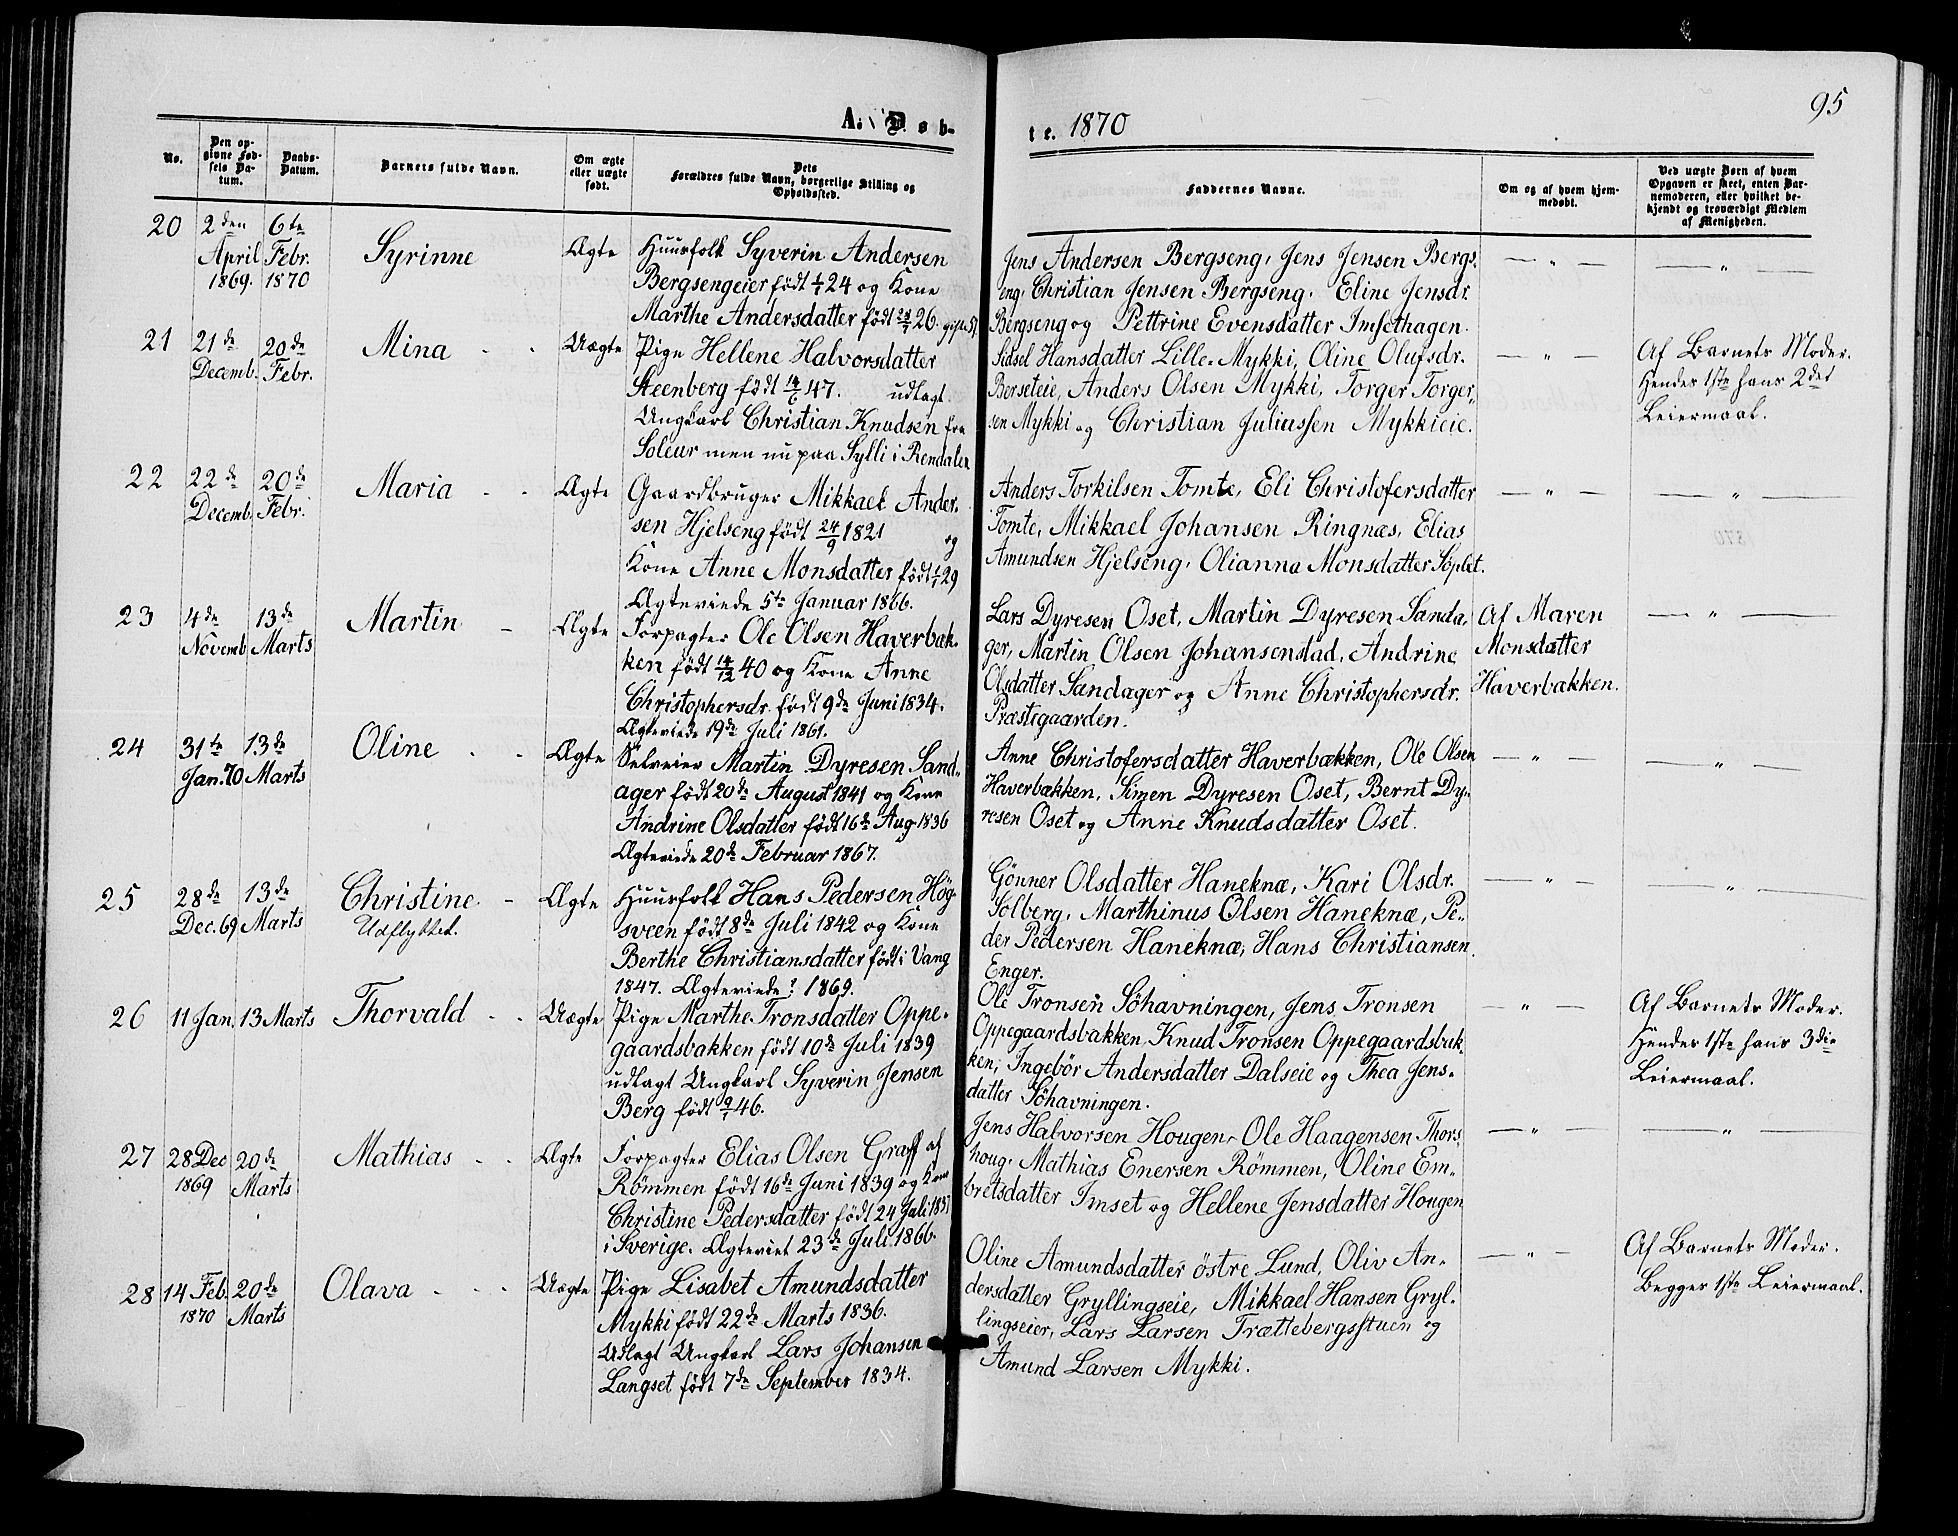 95
A. Døb-
te. 1870
No.
Den op-
givne Fød-
sels Da-
tum.
Daabs-
Datum.
Barnets fulde Navn.
Om ægte
eller uægte
født.
Dets
Forældres fulde Navn, borgerlige Stilling og
Opholdssted.
Faddernes Navne.
Om og af hvem hjem-
medøbt.
Ved uægte Børn af hvem
Opgaven er skeet, enten Bar-
nemoderen, eller hvilket be-
kjendt og troværdigt Medlem
af Menigheden.
20
2den
April
1869.
6te
Febr.
1870
Syrinne
Ægte
Huusfolk Syverin Andersen
Bergsengeier født 1/1 24 og Kone
Marthe Andersdatter født 24/7 26. gifte 51.
Jens Andersen Bergseng, Jens Jensen Bergs.
eng, Christian Jensen Bergseng, Eline Jensdr.
Bergseng og Pettrine Evensdatter Imsethagen.
— " —
— " —
21
21de
Decemb.
20de
Febr.
Mina - -
Uægte
Pige Hellene Halvorsdatter
Steenberg født 14/6 47. udlagt.
Ungkarl Christian Knudsen fra
Soleur men nu paa Sylli i Rendalen
Sidsel Hansdatter Lille-Mykki, Oline Olufsdr.
Berseteie, Anders Olsen Mykki, Torger Torger-
sen Mykki og Christian Juliussen Mykkieie.
— " —
Af Barnets Moder.
Hendes 1ste hans 2det
Leiermaal.
22
22de
Decemb.
20de
Febr.
Maria - -
Ægte
Gaardbruger Mikkael Ander-
sen Hjelseng født 24/9 1821 og
Kone Anne Monsdatter født 1/1 29
Ægteviede 5te Januar 1866.
Anders Torkilsen Tomte, Eli Christofersdatter
Tomte, Mikkael Johansen Ringnæs, Elias
Amundsen Hjelseng, Olianna Monsdatter Soplet.
— " —
— " —
23
4de
Novemb
13de
Marts
Martin -
Ægte
Forpagter Ole Olsen Haverbak-
ken født 14/12 40 og Kone Anne
Christophersdr. født 9de Juni 1834.
Ægteviede 19de Juli 1861.
Lars Dyresen Oset, Martin Dyresen Sanda-
ger, Martin Olsen Johansenstad, Andrine
Olsdatter Sandager og Anne Christophersdr.
Præstegaarden.
Af Maren
Monsdatter
Haverbakken.
— " —
24
31te
Jan. 70
13de
Marts
Oline - -
Ægte
Selveier Martin Dyresen Sand-
ager født 20de August 1841 og Kone
Andrine Olsdatter født 16de Aug. 1836
Ægteviede 20de Februar 1867.
Anne Christofersdatter Haverbækken, Ole Olsen
Haverbækken, Simen Dyresen Oset, Bernt Dy-
resen Oset og Anne Knudsdatter Oset.
— " —
— " —
25
28de
Dec. 69
13de
Marts
Christine -
Udflyttet.
Ægte
Huusfolk Hans Pedersen Høg-
sveen født 8de Juli 1842 og Kone
Berthe Christiansdatter født i Vang
1847. Ægteviede? 1869.
Gönner Olsdatter Haneknæ, Kari Olsdr.
Solberg, Marthinus Olsen Haneknæ, Pe-
der Pedersen Haneknæ, Hans Christiansen
Enger.
— " —
— " —
26
11 Jan.
13 Marts
Thorvald - -
Uægte
Pige Marthe Tronsdatter Oppe-
gaardsbakken født 10de Juli 1839
udlagt Ungkarl Syverin Jensen
Berg født 9/1 46.
Ole Tronsen Söhavningen, Jens Tronsen
Oppegaardsbakken, Knud Tronsen Oppegaardsbak-
ken, Ingebör Andersdatter Dalseie og Thea Jens-
datter Söhavningen.
— " —
Af Barnets Moder.
Hendes 1ste hans 3die
Leiermaal.
27
28 Dec
1869
20de
Marts
Mathias - -
Ægte
Forpagter Elias Olsen Graff af
Römmen født 16de Juni 1839 og Kone
Christine Pedersdatter født 24 Juli 183
i Sverige. Ægteviet 23de Juli 1866.
Jens Halvorsen Hougen, Ole Haagensen Thors-
houg, Mathias Enersen Römmen, Oline Em-
bretsdatter Imset og Hellene Jensdatter Hougen
— " —
— " —
28
14 Feb.
1870
20de
Marts
Olava - - -
Uægte
Pige Lisabet Amundsdatter
Mykki født 22de Marts 1836.
Udlagt Ungkarl Lars Johansen
Langset født 7de September 1834.
Oline Amundsdatter östre Lund, Oliv An-
dersdatter Gryllingseie, Mikkael Hansen Gryl-
lingseier, Lars Larsen Trættebergsstuen og
Amund Larsen Mykki.
— " —
Af Barnets Moder.
Begges 1ste Leiermaal.